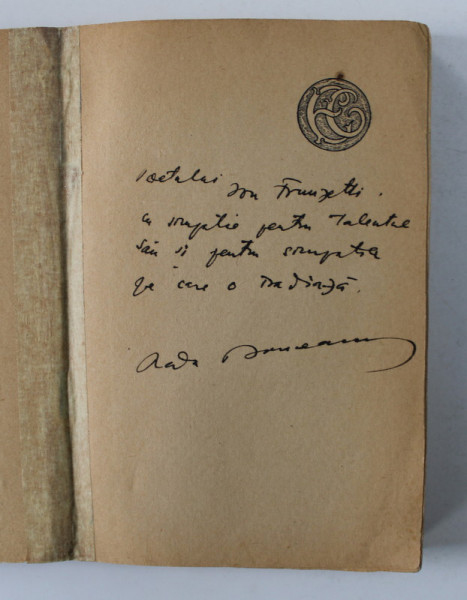 Poetului Ion Frunzetti.
cu simpatie pentru talentul
său si pentru simpatia
pe care o radiază.
Radu Boureanu